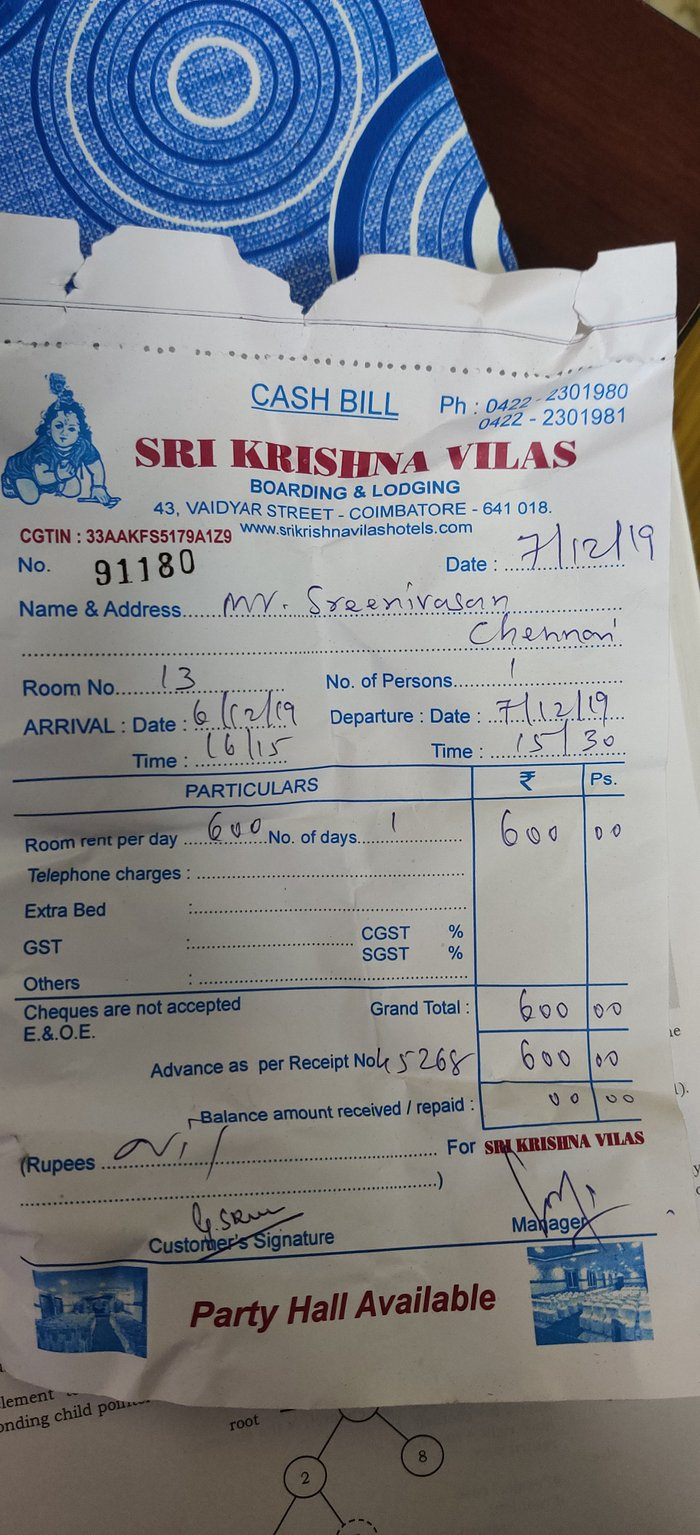 CASH BILL
Ph : 0422 - 2301980
0422 - 2301981
SRI KRISHNA VILAS
BOARDING & LODGING
43, VAIDYAR STREET - COIMBATORE - 641 018.
CGTIN : 33AAKFS5179A1Z9 www.srikrishnavilashotels.com
No. 91180 Date : 7/12/19
Name & Address Mr. Sreenivasan
Chennai
Room No. 13 No. of Persons 1
ARRIVAL : Date : 6/12/19 Departure : Date : 7/12/19
Time : 16/15 Time : 15/30
PARTICULARS ₹ Ps.
Room rent per day 600 No. of days 1 600 00
Telephone charges :
Extra Bed :
GST : CGST %
SGST %
Others :
Cheques are not accepted Grand Total : 600 00
E.&.O.E.
Advance as per Receipt No 45268 600 00
Balance amount received / repaid : 00 00
(Rupees Nil For SRI KRISHNA VILAS
)
Customer's Signature Manager
Party Hall Available
lement
onding child
root
8
2